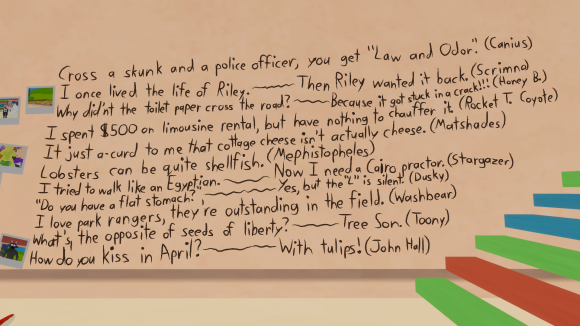 Cross a skunk and a police officer, you get "Law and Odor." (Canius)
I once lived the life of Riley. Then Riley wanted it back. (Scrimno)
Why did'nt the toilet paper cross the road? Because it got stuck in a crack!!! (Honey B.)
I spent $500 on limousine rental, but have nothing to chauffer it. (Rocket T. Coyote)
It just a-curd to me that cottage cheese isn't actually cheese. (Matshades)
Lobsters can be quite shellfish. (Mephistopheles)
I tried to walk like an Egyptian. Now I need a Cairo practor. (Stargazer)
"Do you have a flat stomach?" Yes, but the "L" is silent. (Dusky)
I love park rangers, they're outstanding in the field. (Washbear)
What's the opposite of seeds of liberty? Tree Son. (Toony)
How do you kiss in April? With tulips! (John Hall)